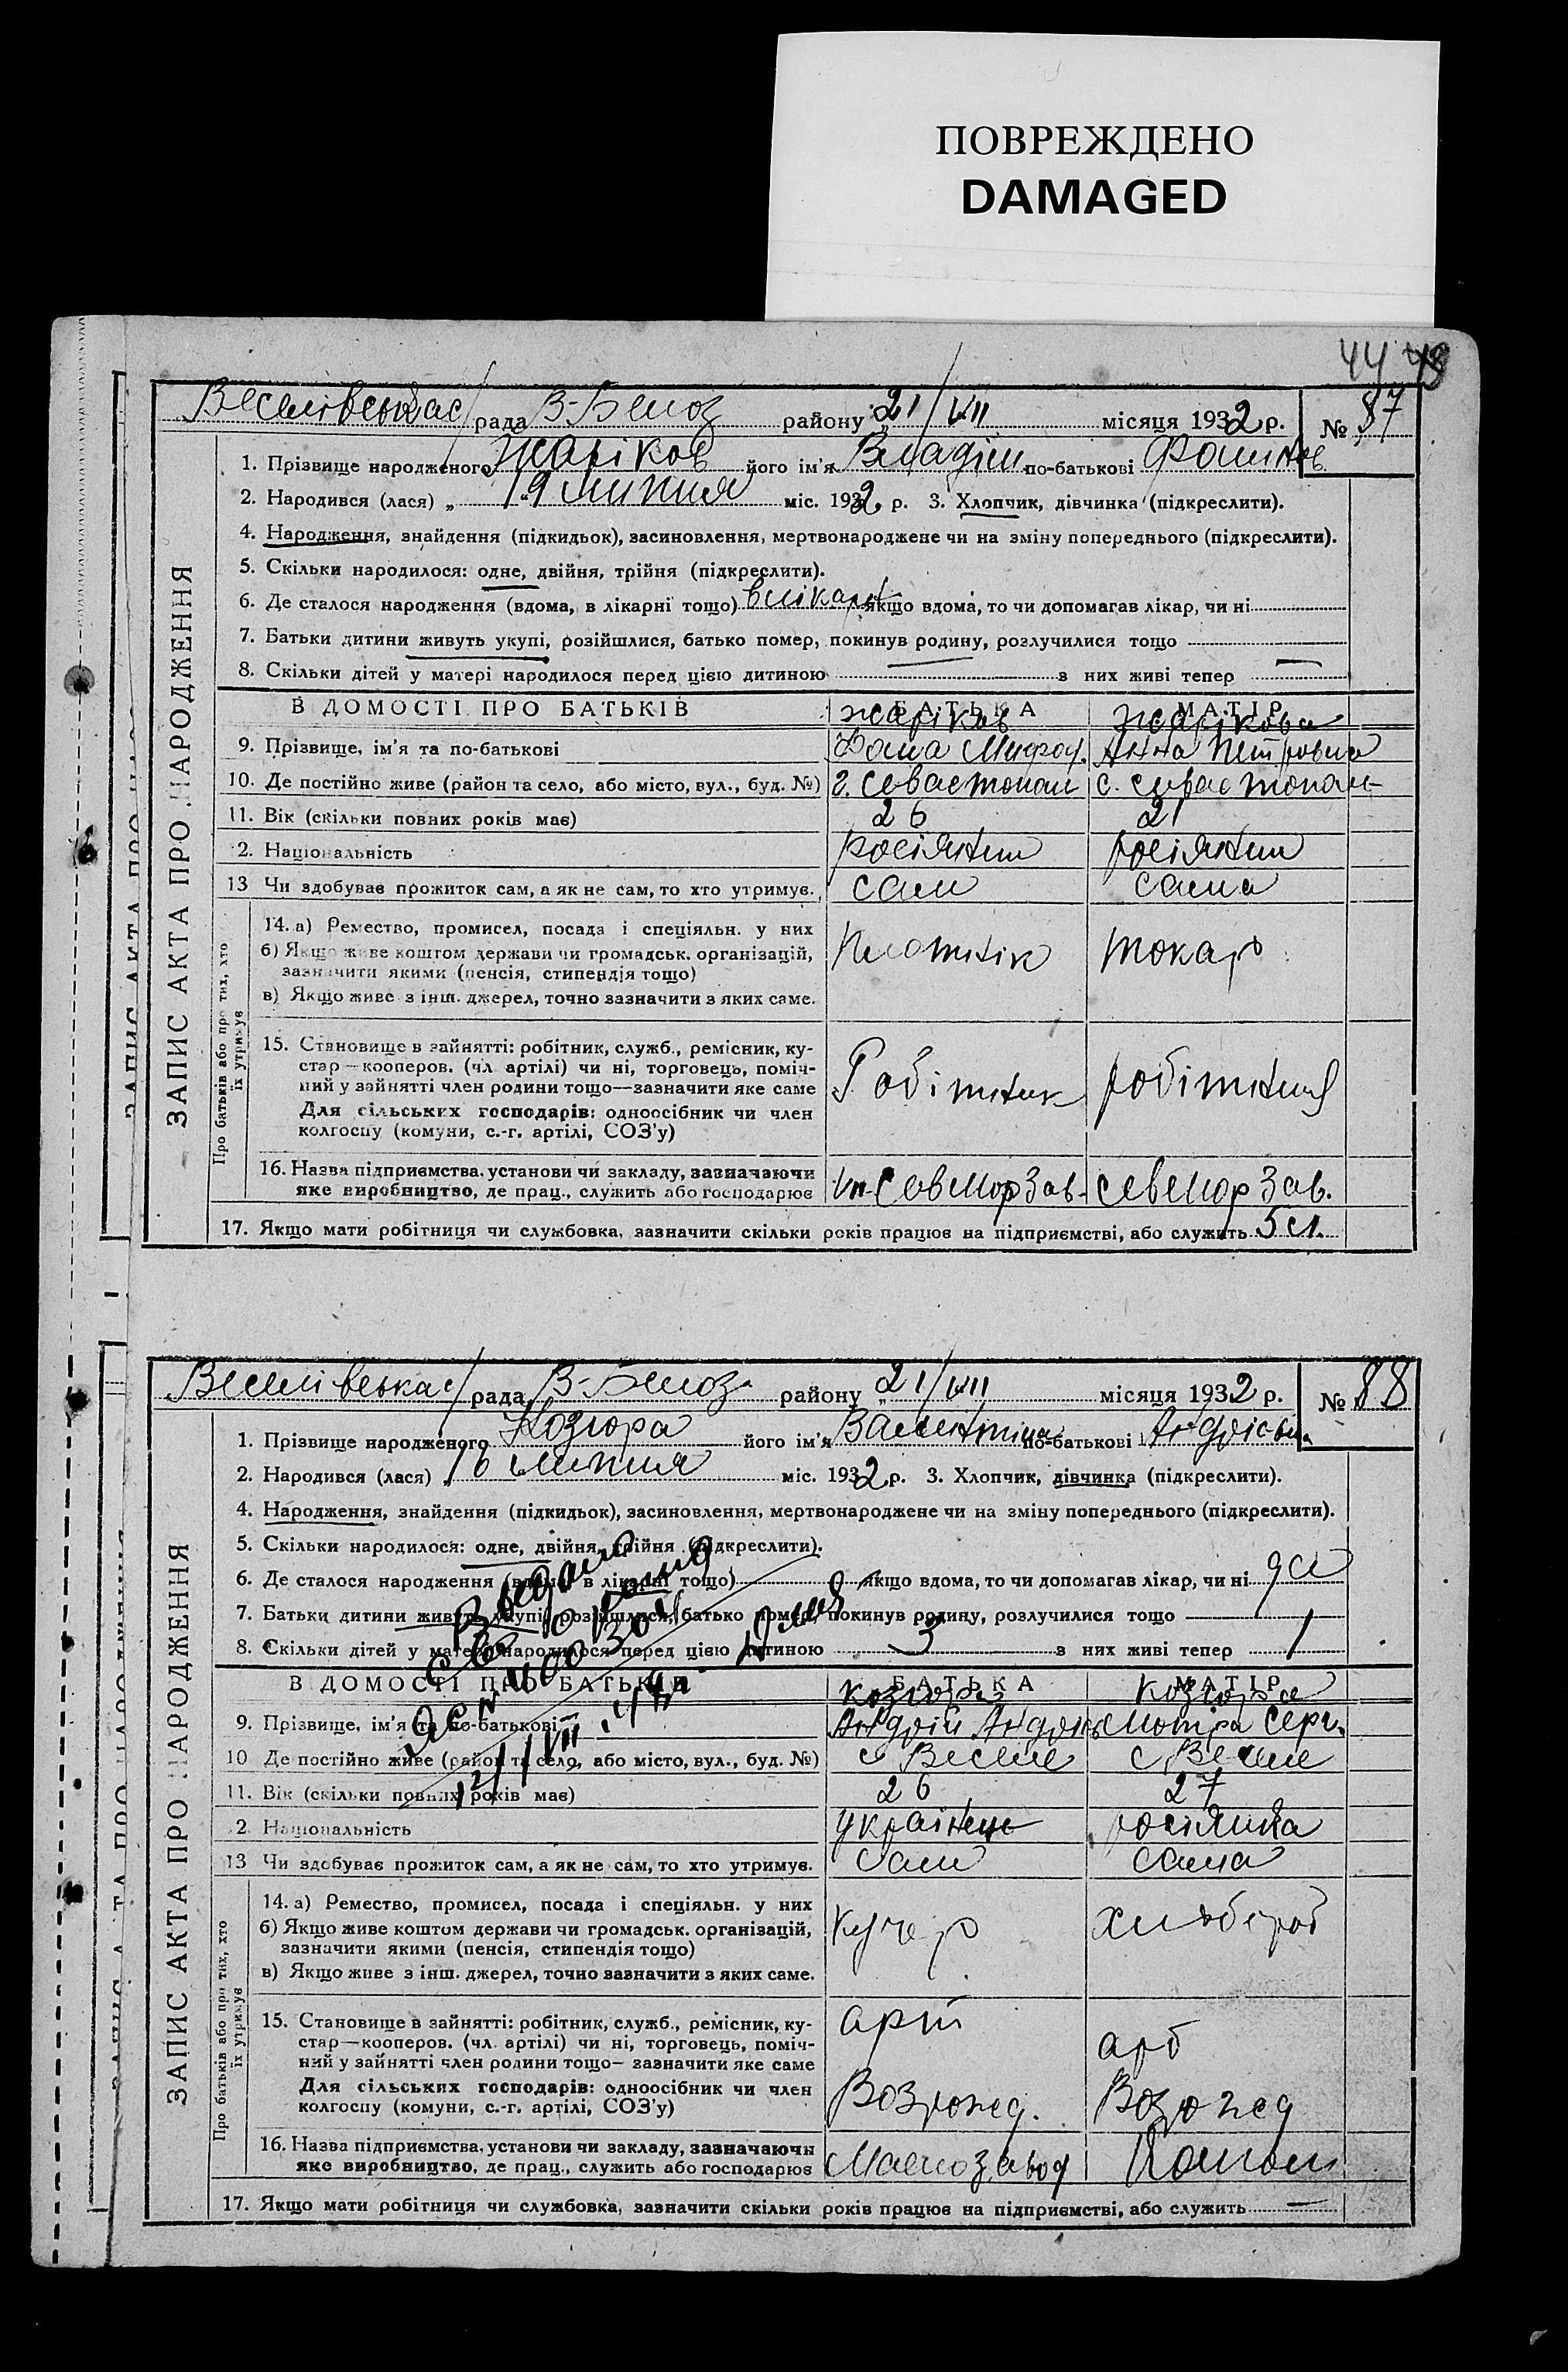 ПОВРЕЖДЕНО
DAMAGED
44
ЗАПИС АКТА ПРО НАРОДЖЕННЯ
Веселівська с/рада В-Білоз району „21/VII місяця 1932 р. № 87
1. Прізвище народженого Жаріков його ім'я Владім по-батькові Фомич
2. Народився (лася) „19 липня міс. 1932 р. 3. Хлопчик, дівчинка (підкреслити).
4. Народження, знайдення (підкидьок), засиновлення, мертвонароджене чи на зміну попереднього (підкреслити).
5. Скільки народилося: одне, двійня, трійня (підкреслити).
6. Де сталося народження (вдома, в лікарні тощо) в лікарні якщо вдома, то чи допомагав лікар, чи ні
7. Батьки дитини живуть укупі, розійшлися, батько помер, покинув родину, розлучилися тощо
8. Скільки дітей у матері народилося перед цією дитиною — з них живі тепер —
ВІДОМОСТІ ПРО БАТЬКІВ БАТЬКА МАТІР
Жаріков Жарікова
9. Прізвище, ім'я та по-батькові Фома Митроф. Анна Петровна
10. Де постійно живе (район та село, або місто, вул., буд. №) г. Севастополь с. Севастополь
11. Вік (скільки повних років має) 26 21
12. Національність росіянин росіянин
13 Чи здобуває прожиток сам, а як не сам, то хто утримує. сам сама
Про батьків або про тих, хто їх утримує
14. а) Ремество, промисел, посада і спеціяльн. у них
б) Якщо живе коштом держави чи громадськ. організацій, зазначити якими (пенсія, стипендія тощо) Плотнік токарь
в) Якщо живе з інш. джерел, точно зазначити з яких саме.
15. Становище в зайнятті: робітник, служб., ремісник, ку-
стар—кооперов. (чл. артілі) чи ні, торговець, поміч-
ний у зайнятті член родини тощо—зазначити яке саме Робітник робітниця
Для сільських господарів: одноосібник чи член
колгоспу (комуни, с.-г. артілі, СОЗ'у)
16. Назва підприємства, установи чи закладу, зазначаючи
яке виробництво, де прац., служить або господарює СевМорЗав. СевМорЗав.
17. Якщо мати робітниця чи службовка, зазначити скільки років працює на підприємстві, або служить 5 л.
ЗАПИС АКТА ПРО НАРОДЖЕННЯ
Веселівська с/рада В-Білоз. району „21/VII місяця 1932 р. № 88
1. Прізвище народженого Козюра його ім'я Валентина по-батькові Андріївна
2. Народився (лася) „16 липня міс. 1932 р. 3. Хлопчик, дівчинка (підкреслити).
4. Народження, знайдення (підкидьок), засиновлення, мертвонароджене чи на зміну попереднього (підкреслити).
5. Скільки народилося: одне, двійня, трійня (підкреслити).
6. Де сталося народження (вдома, в лікарні тощо) якщо вдома, то чи допомагав лікар, чи ні
7. Батьки дитини живуть укупі, розійшлися, батько помер, покинув родину, розлучилися тощо
8. Скільки дітей у матері народилося перед цією дитиною 3 з них живі тепер 1
ВІДОМОСТІ ПРО БАТЬКІВ БАТЬКА МАТІР
Козюра Козюра
9. Прізвище, ім'я та по-батькові Андрій Андрієв Мотря Серг.
10 Де постійно живе (район та село, або місто, вул., буд. №) с Веселе с Веселе
11. Вік (скільки повних років має) 26 27
12. Національність українець росіянка
13 Чи здобуває прожиток сам, а як не сам, то хто утримує. сам сама
Про батьків або про тих, хто їх утримує
14. а) Ремество, промисел, посада і спеціяльн. у них
б) Якщо живе коштом держави чи громадськ. організацій,
зазначити якими (пенсія, стипендія тощо) Кучер хлібороб
в) Якщо живе з інш. джерел, точно зазначити з яких саме.
15. Становище в зайнятті: робітник, служб., ремісник, ку- арт
стар—кооперов. (чл. артілі) чи ні, торговець, поміч-
ний у зайнятті член родини тощо— зазначити яке саме
Для сільських господарів: одноосібник чи член Возрожд. Возрожд
колгоспу (комуни, с.-г. артілі, СОЗ'у)
16. Назва підприємства, установи чи закладу, зазначаючи
яке виробництво, де прац., служить або господарює Маслозавод
17. Якщо мати робітниця чи службовка, зазначити скільки років працює на підприємстві, або служить —